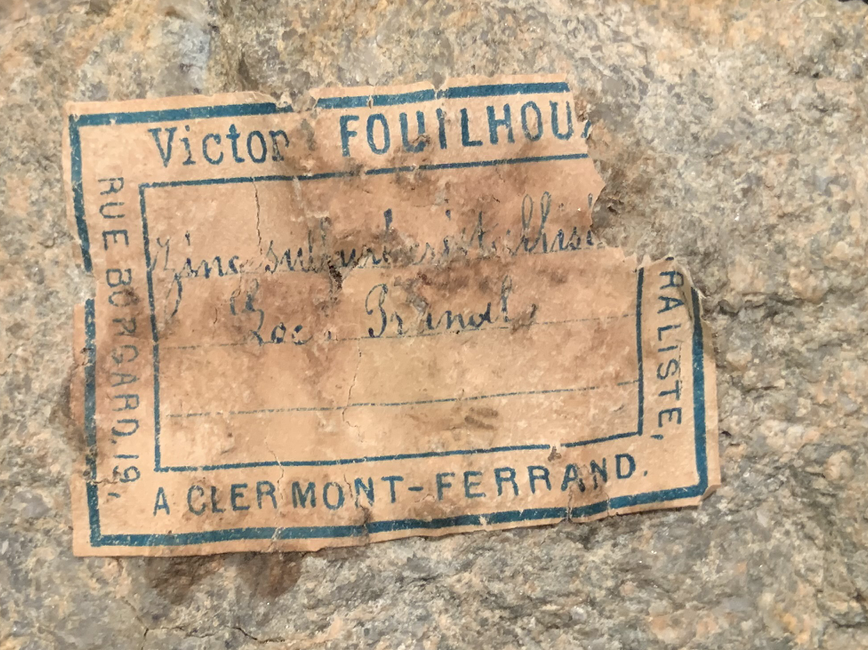 Victor FOUILHOU
RALISTE,
A CLERMONT-FERRAND.
RUE BORGARD, 19,
Zinc sulfuré cristallisé
Loc.